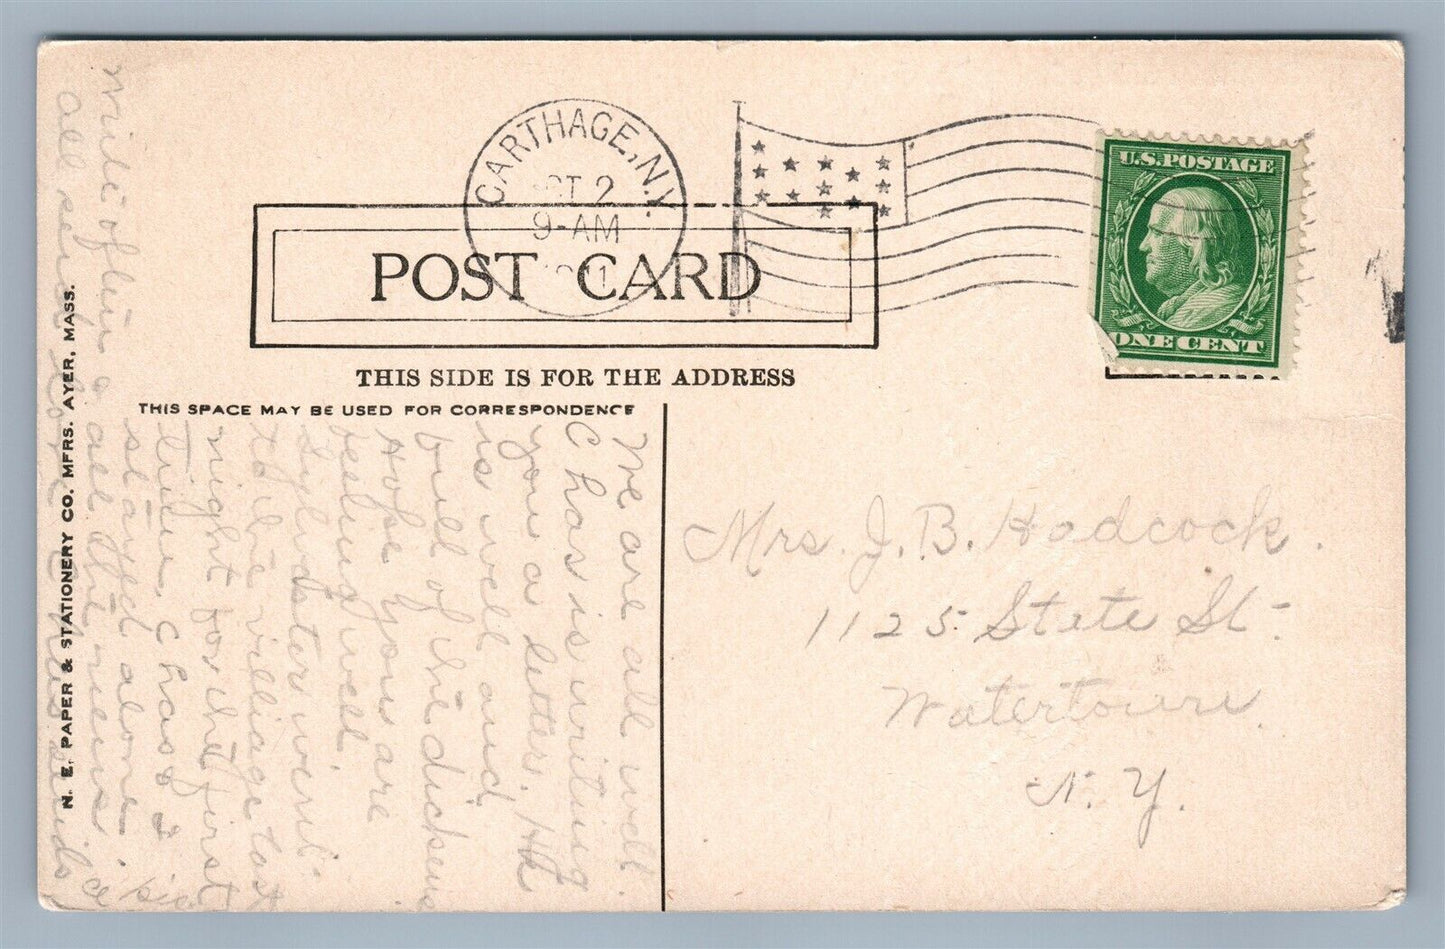 CARTHAGE, N.Y.
OCT 2
9-AM
1911
U.S. POSTAGE
ONE CENT
POST CARD
THIS SIDE IS FOR THE ADDRESS
THIS SPACE MAY BE USED FOR CORRESPONDENCE
N. E. PAPER & STATIONERY CO. MFRS. AYER, MASS.
We are all well.
Chas is writing
you a letter. He
is well and
full of the
Hope you are
feeling well.
Sylvester went
to the village last
night for the first
time, Chas &
stayed alone.
all the news
write often
all send love Chas sends
Mrs. J. B. Hadcock.
1125 State St.
Watertown.
N. Y.